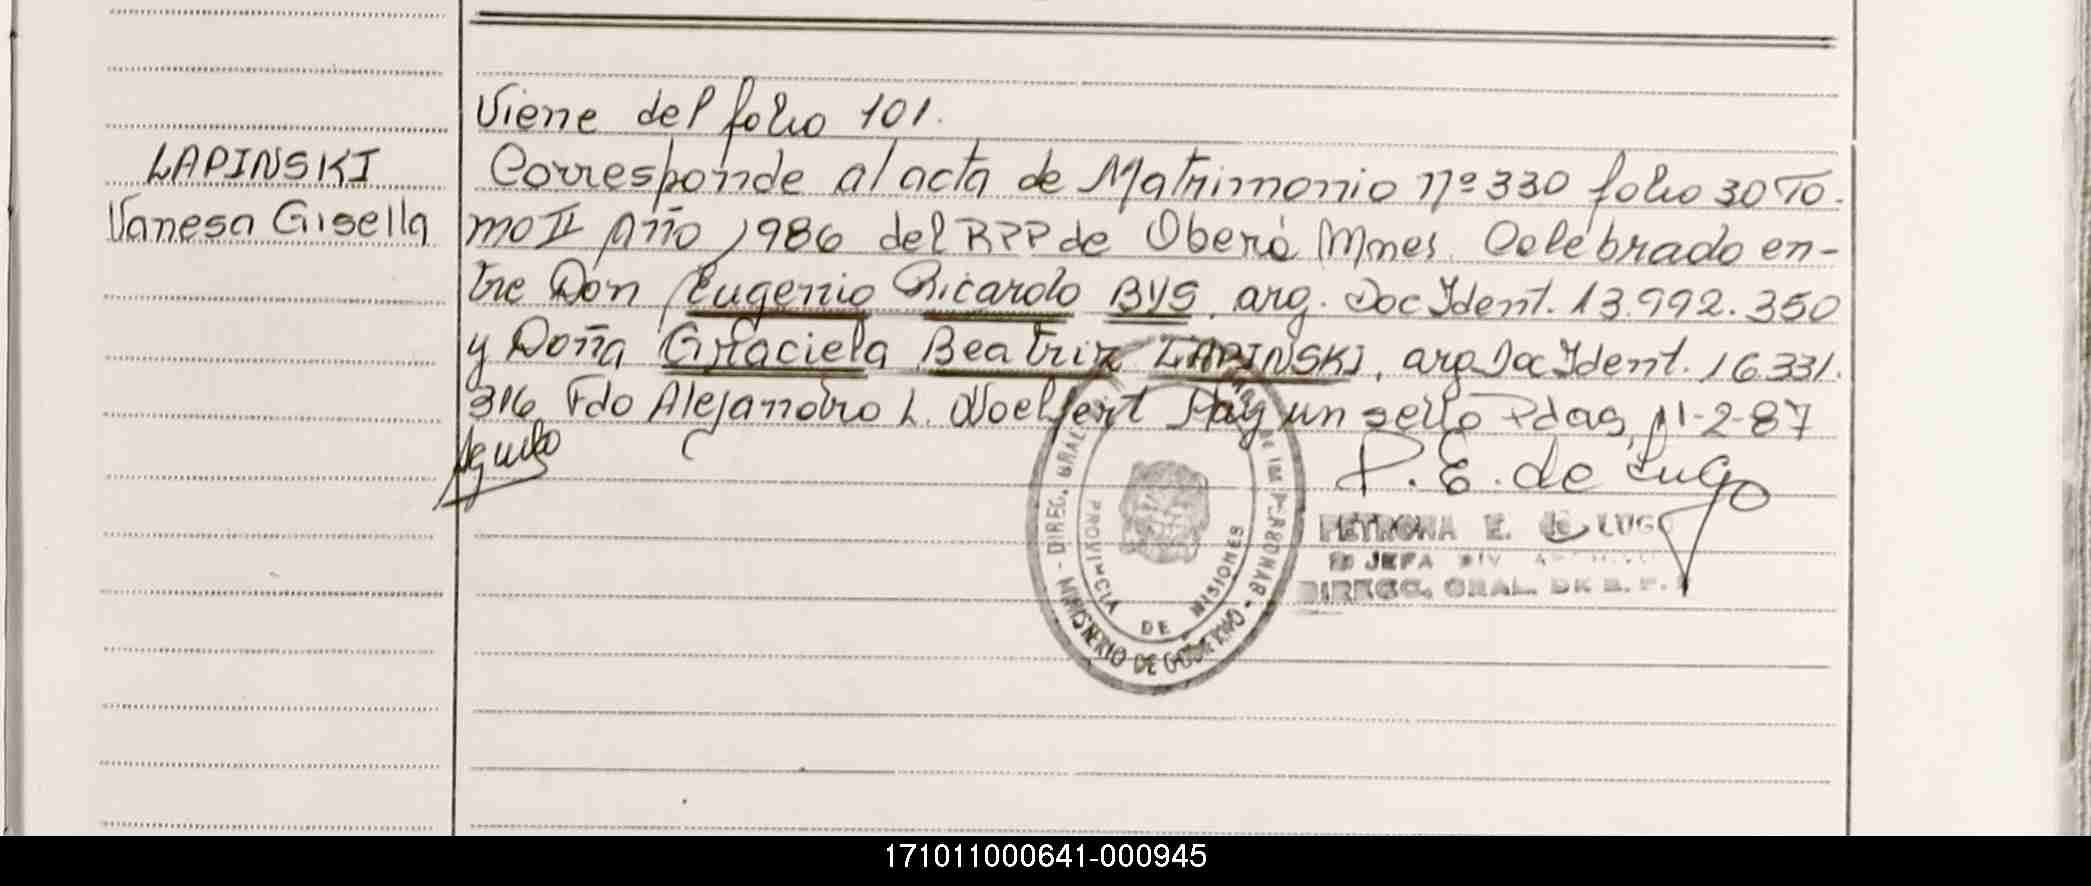 Viene del folio 101.
LAPINSKI
Vanesa Gisella
Corresponde al acta de Matrimonio nº 330 folio 30 To-
mo II Año 1986 del RPP de Oberá Mnes. Celebrado en-
tre Don Eugenio Ricardo BYS, arg. Doc Ident. 13.992.350
y Doña Graciela Beatriz LAPINSKI, arg Doc Ident. 16.331.
316. Fdo Alejandro L. Hay un sello Pdas, 11-2-87
P. E. de Lugo
PETRONA E. DE LUGO
JEFA DIV
DIRECC. GRAL. DE R. P.
MINISTERIO DE GOBIERNO - DIREC. GRAL. DE LAS PERSONAS
PROVINCIA DE MISIONES
171011000641-000945